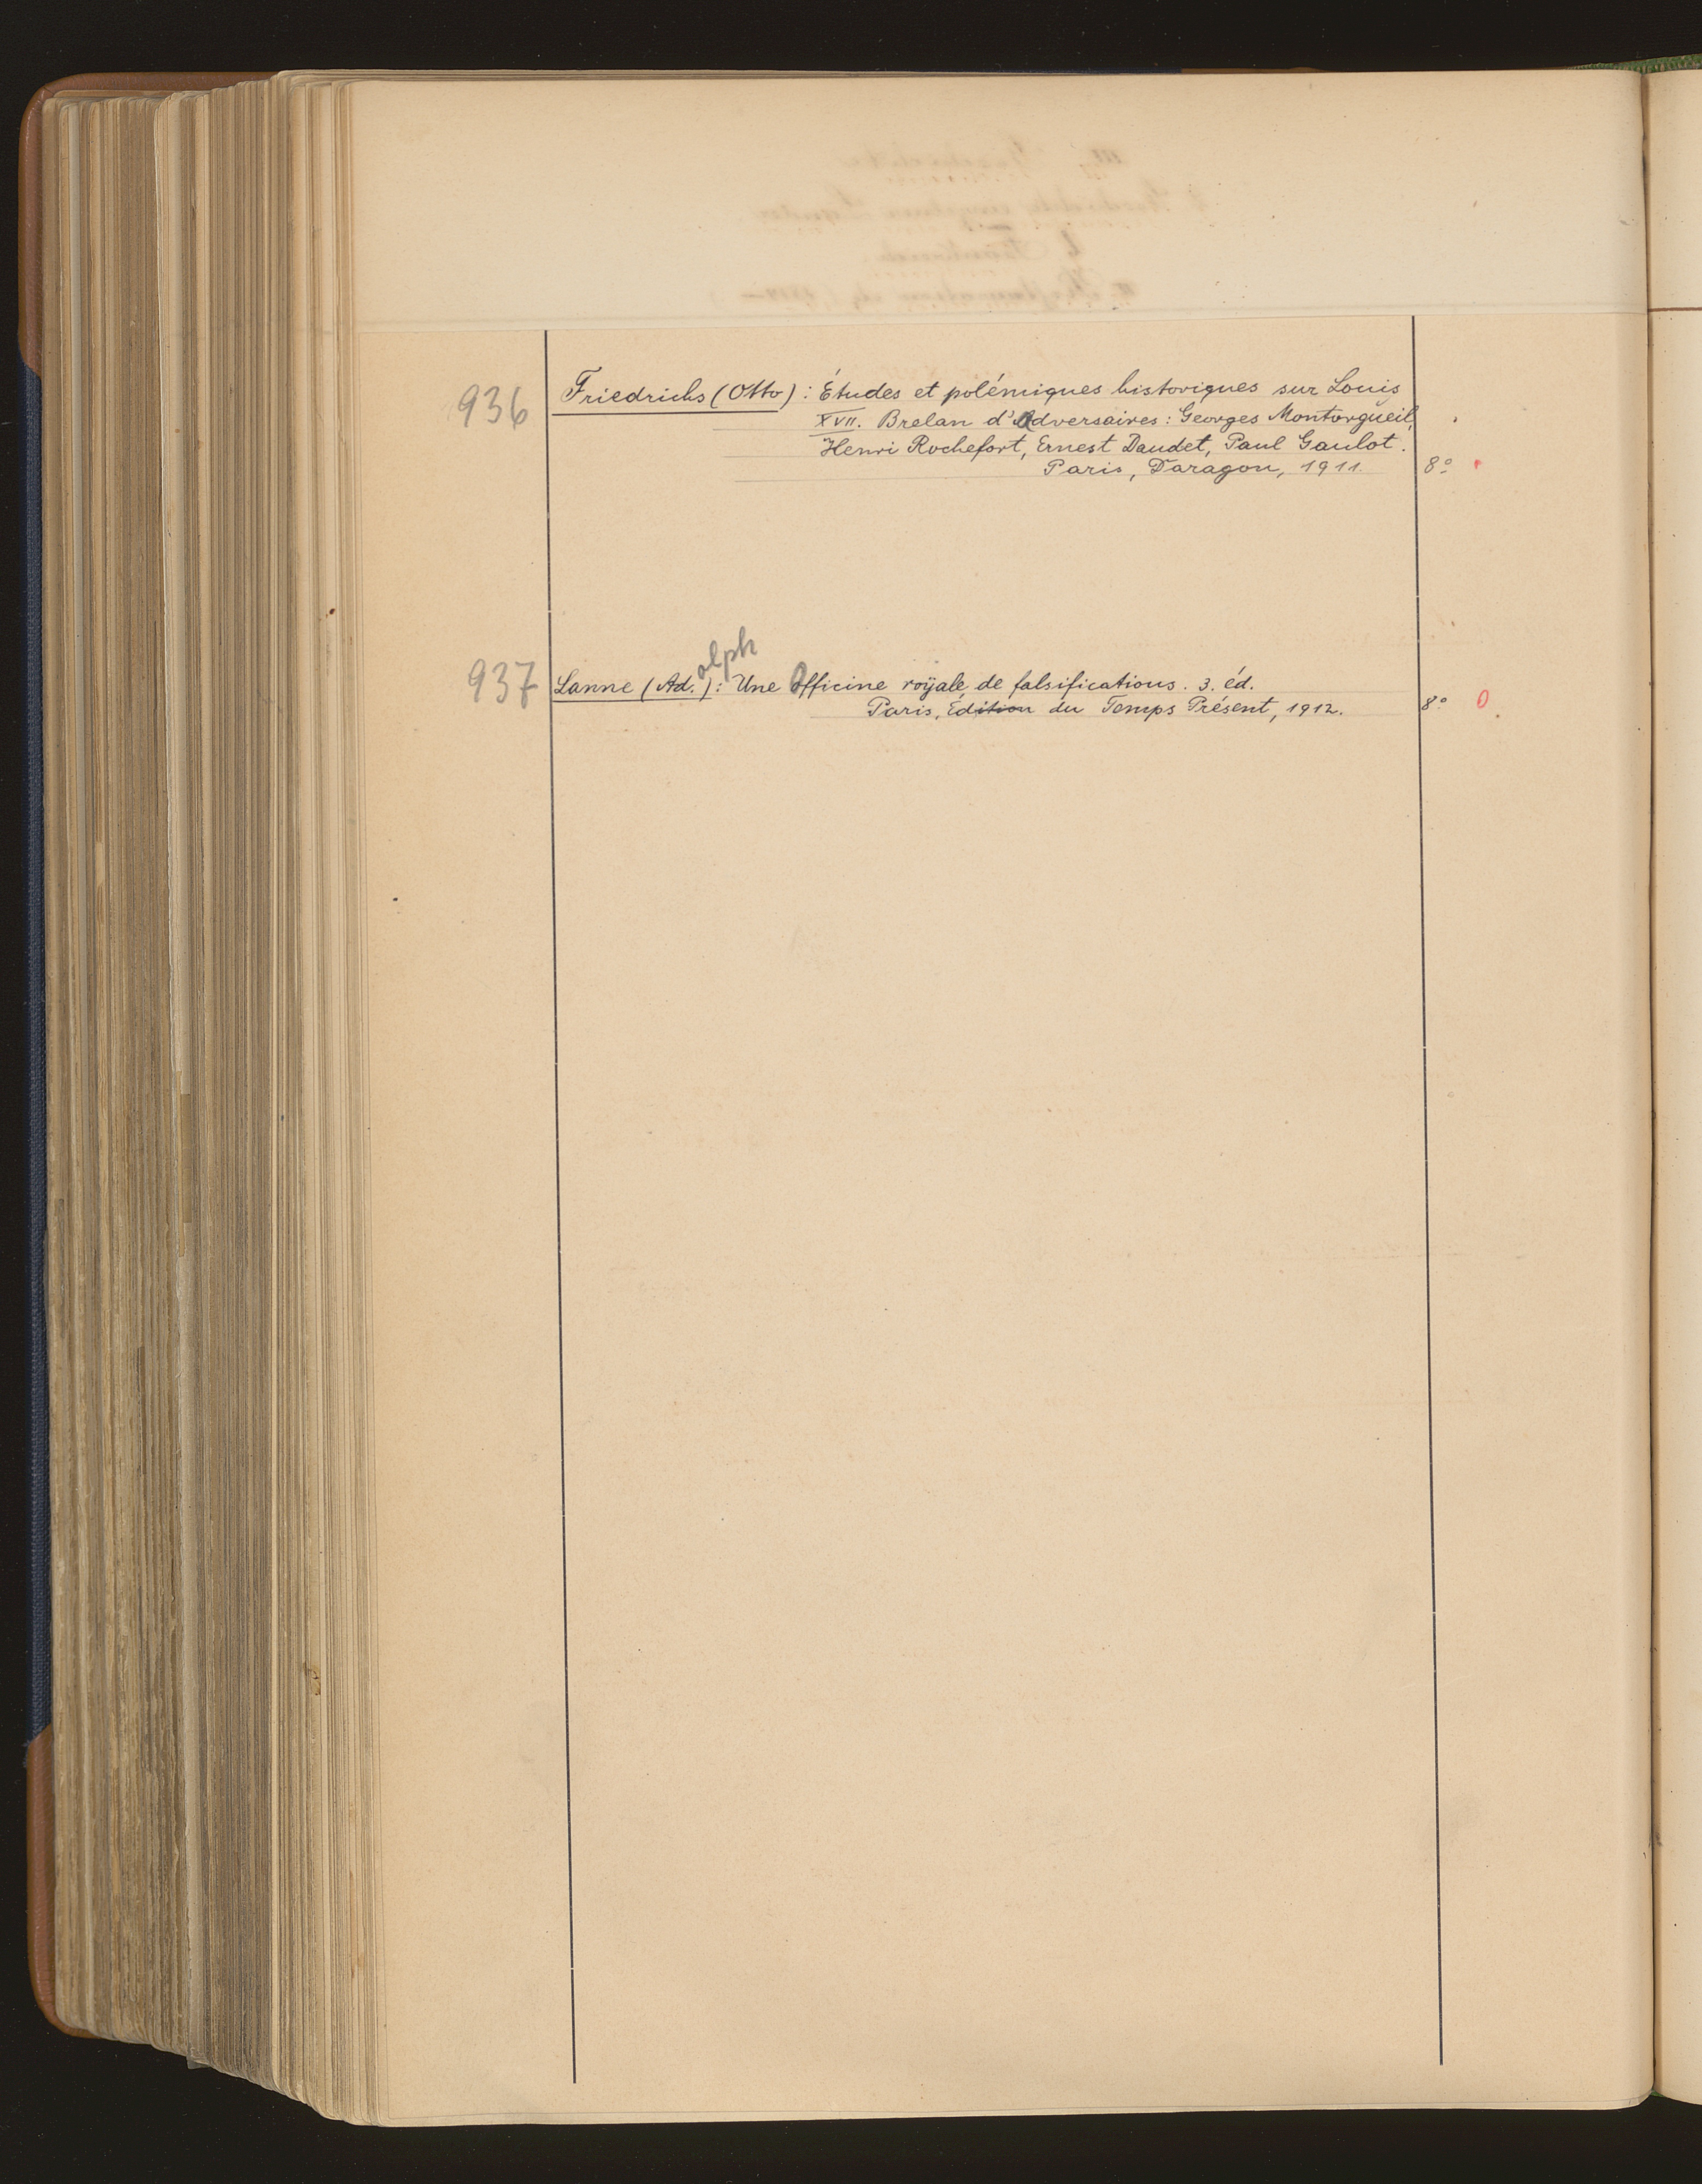 936 Friedrichs (Otto): Études et polémiques historiques sur Louis
XVII. Brelan d'Adversaires: Georges Montorgueil,
Henri Rochefort, Ernest Daudet, Paul Gaulot.
Paris, Daragon, 1911. 8º
olph
937 Lanne (Ad.): Une Officine royale de falsifications. 3. éd.
Paris, Edition du Temps Présent, 1912. 8º 0